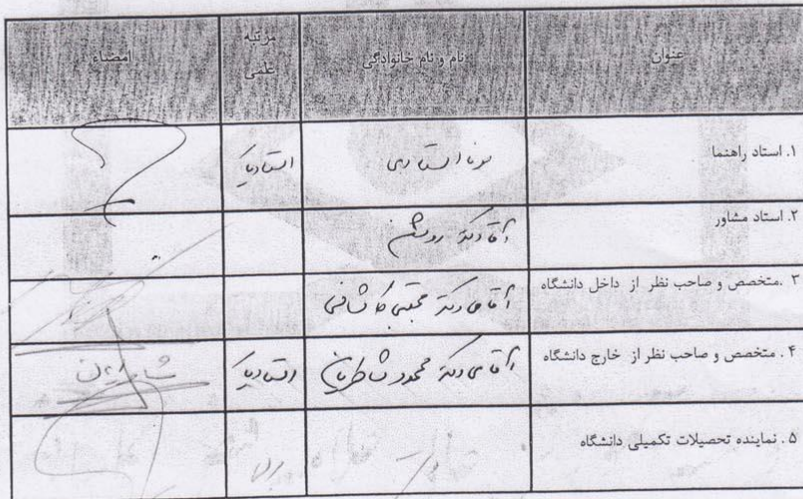 عنوان نام و نام خانوادگی مرتبه علمی امضاء
۱. استاد راهنما استادیار
۲. استاد مشاور آقا دکتر روشن
۳. متخصص و صاحب نظر از داخل دانشگاه آقای دکتر مجتبی کاشانی
۴. متخصص و صاحب نظر از خارج دانشگاه آقای دکتر محمود شاطریان استادیار شاطریان
۵. نماینده تحصیلات تکمیلی دانشگاه